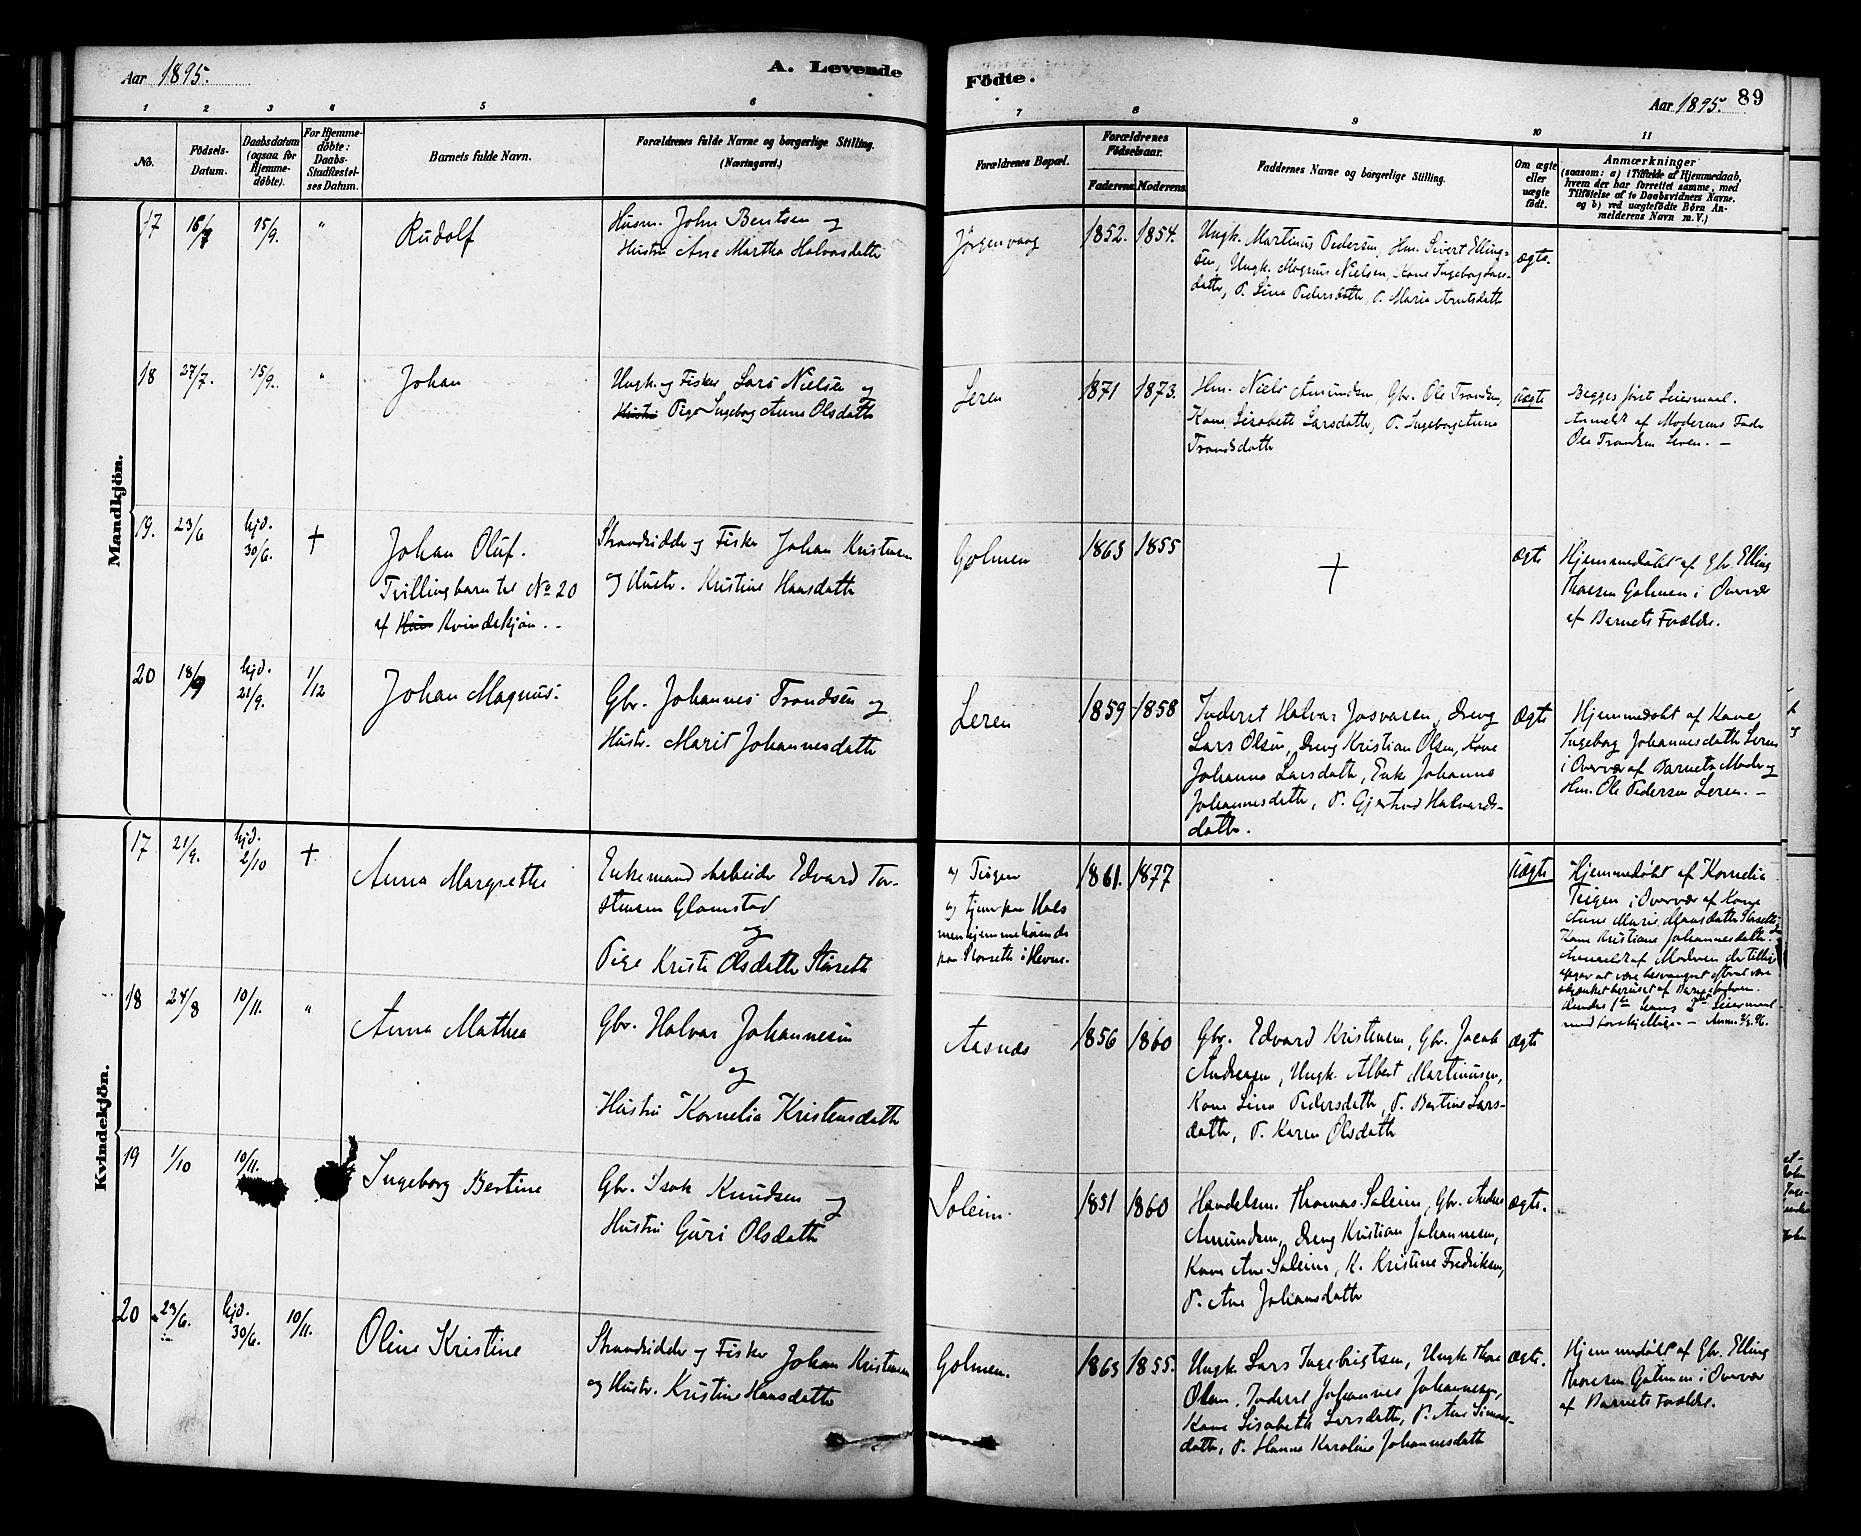 Aar 1895.
A. Levende
Födte.
Aar 1895.
89
1 2 3 4 5 6 7 8 9 10 11
No.
Födsels-
Datum.
Daabsdatum
(ogsaa for
Hjemme-
döbte).
For Hjemme-
döbte:
Daabs-
Stadfæstel-
ses Datum.
Barnets fulde Navn.
Forældrenes fulde Navne og borgerlige Stilling.
(Næringsvei.)
Forældrenes Bopæl.
Forældrenes
Födselsaar.
Faderens. Moderens.
Faddernes Navne og borgerlige Stilling.
Om ægte
eller
uægte
födt.
Anmærkninger
(saasom: a) i Tilfælde af Hjemmedaab,
hvem der har forrettet samme, med
Tilföielse af to Daabsvidners Navne.
og b) ved uægtefödte Börn An-
melderens Navn m. V.)
Mandkjön.
17
15/9.
"
Rudolf
Husm. John Bentsen og
Hustru Ane Martha Halvorsdatter
Jörgenvaag
1852. 1854.
Ungk. Martinus Pedersen, Hm. Sivert Elling-
sen, Ungk. Magnus Nielsen, Kone Ingeborg Lars-
datter, P. Lina Pedersdatter, P. Maria Arntsdatter
ægte.
18
27/7.
15/9.
"
Johan
Ungk. og Fisker Lars Nielsen og
Hustru Pige Ingeborg Anna Olsdatter
Leren
1871 1873.
Hm. Niels Amundsen, Gbr. Ole Trondsen,
Kone Lisabeth Larsdatter, P. Ingeborg Anna
Trondsdatter
uægte
Begges förste Leiermaal.
Anmeldt af Moderens Fader
Ole Trondsen Leren. –
19.
23/6
hjd.
30/6.
+
Johan Oluf.
Tvillingbarn til No 20
af Kvindekjön. –
Strandsidder og Fisker Johan Kristensen
og Hustr. Kristine Hansdatter
Golmen
1863 1855
+
ægte
Hjemmedöbt af Gbr. Elling
Thoresen Golmen i Overvær
af Barnets Forældre.
20
18/9
hjd.
21/9.
1/12
Johan Magnus.
Gbr. Johannes Trondsen og
Hustr. Marit Johannesdatter
Leren
1859 1858
Inderst Halvar Josvasen, Dreng
Lars Olsen, Dreng Kristian Olsen, Kone
Johanna Larsdatter, Enke Johanna
Johannesdatter, P. Gjertrud Halvards-
datter.
Ægte
Hjemmedöbt af Kone
Ingeborg Johannesdatter Leren
i Overvær af Barnets Moder og
Hm. Ole Pedersen Leren. –
Kvindekjön.
17
21/9.
hjd.
2/10
+
Anna Margrethe
Enkemand Arbeider Edvard Tor-
stensen Glamstad
og
Pige Kristi Olsdatter Storseth
af Teigen
og tjener paa Hals
men hjemmehörende
paa Storseth i Hevne.
1861. 1877
uægte
Hjemmedöbt af Kornelia
Teigen i Overvær af Kone
Anne Marie Hansdatter
Kone Kristiane Johannesdatter.
Anmeldt af Moderen der tillige
opgav at være besvangret efter at være
af Barnefaderen.
Hendes 1ste hans 2det Leiermaal
med forskjellige. –
18
24/8
10/11.
"
Anna Mathea
Gbr. Halvar Johannesen
og
Hustru Kornelia Kristensdatter
Aasnes
1856 1860
Gbr. Edvard Kristensen, Gbr. Jacob
Andersen, Ungk. Albert Martinusen,
Kone Lina Pedersdatter, P. Bertine Lars-
datter, P. Karen Olsdatter
ægte
19
1/10
10/11.
Ingeborg Bertine
Gbr. Isak Knudsen og
Hustru Guri Olsdatter
Soleim.
1851 1860
Handelsm. Thomas Soleim, Gbr. Anders
Amundsen, Dreng Kristian Johannesen,
Kone Ane Soleim, K. Kristine Fredriksen,
P. Ane Johansdatter
ægte.
20
23/6.
hjd.
30/6.
10/11.
Oline Kristine
Strandsidder og Fisker Johan Kristensen
og Hustr. Kristine Hansdatter
Golmen.
1863 1855.
Ungk. Lars Ingebrigtsen, Ungk. Thore
Olsen, Inderst Johannes Johannesen,
Kone Lisabeth Larsdatter, P. Ane Simons-
datter, P. Hanna Karoline Johannesdatter
ægte.
Hjemmedöbt af Gbr. Elling
Thoresen Golmen i Overvær
af Barnets Forældre.